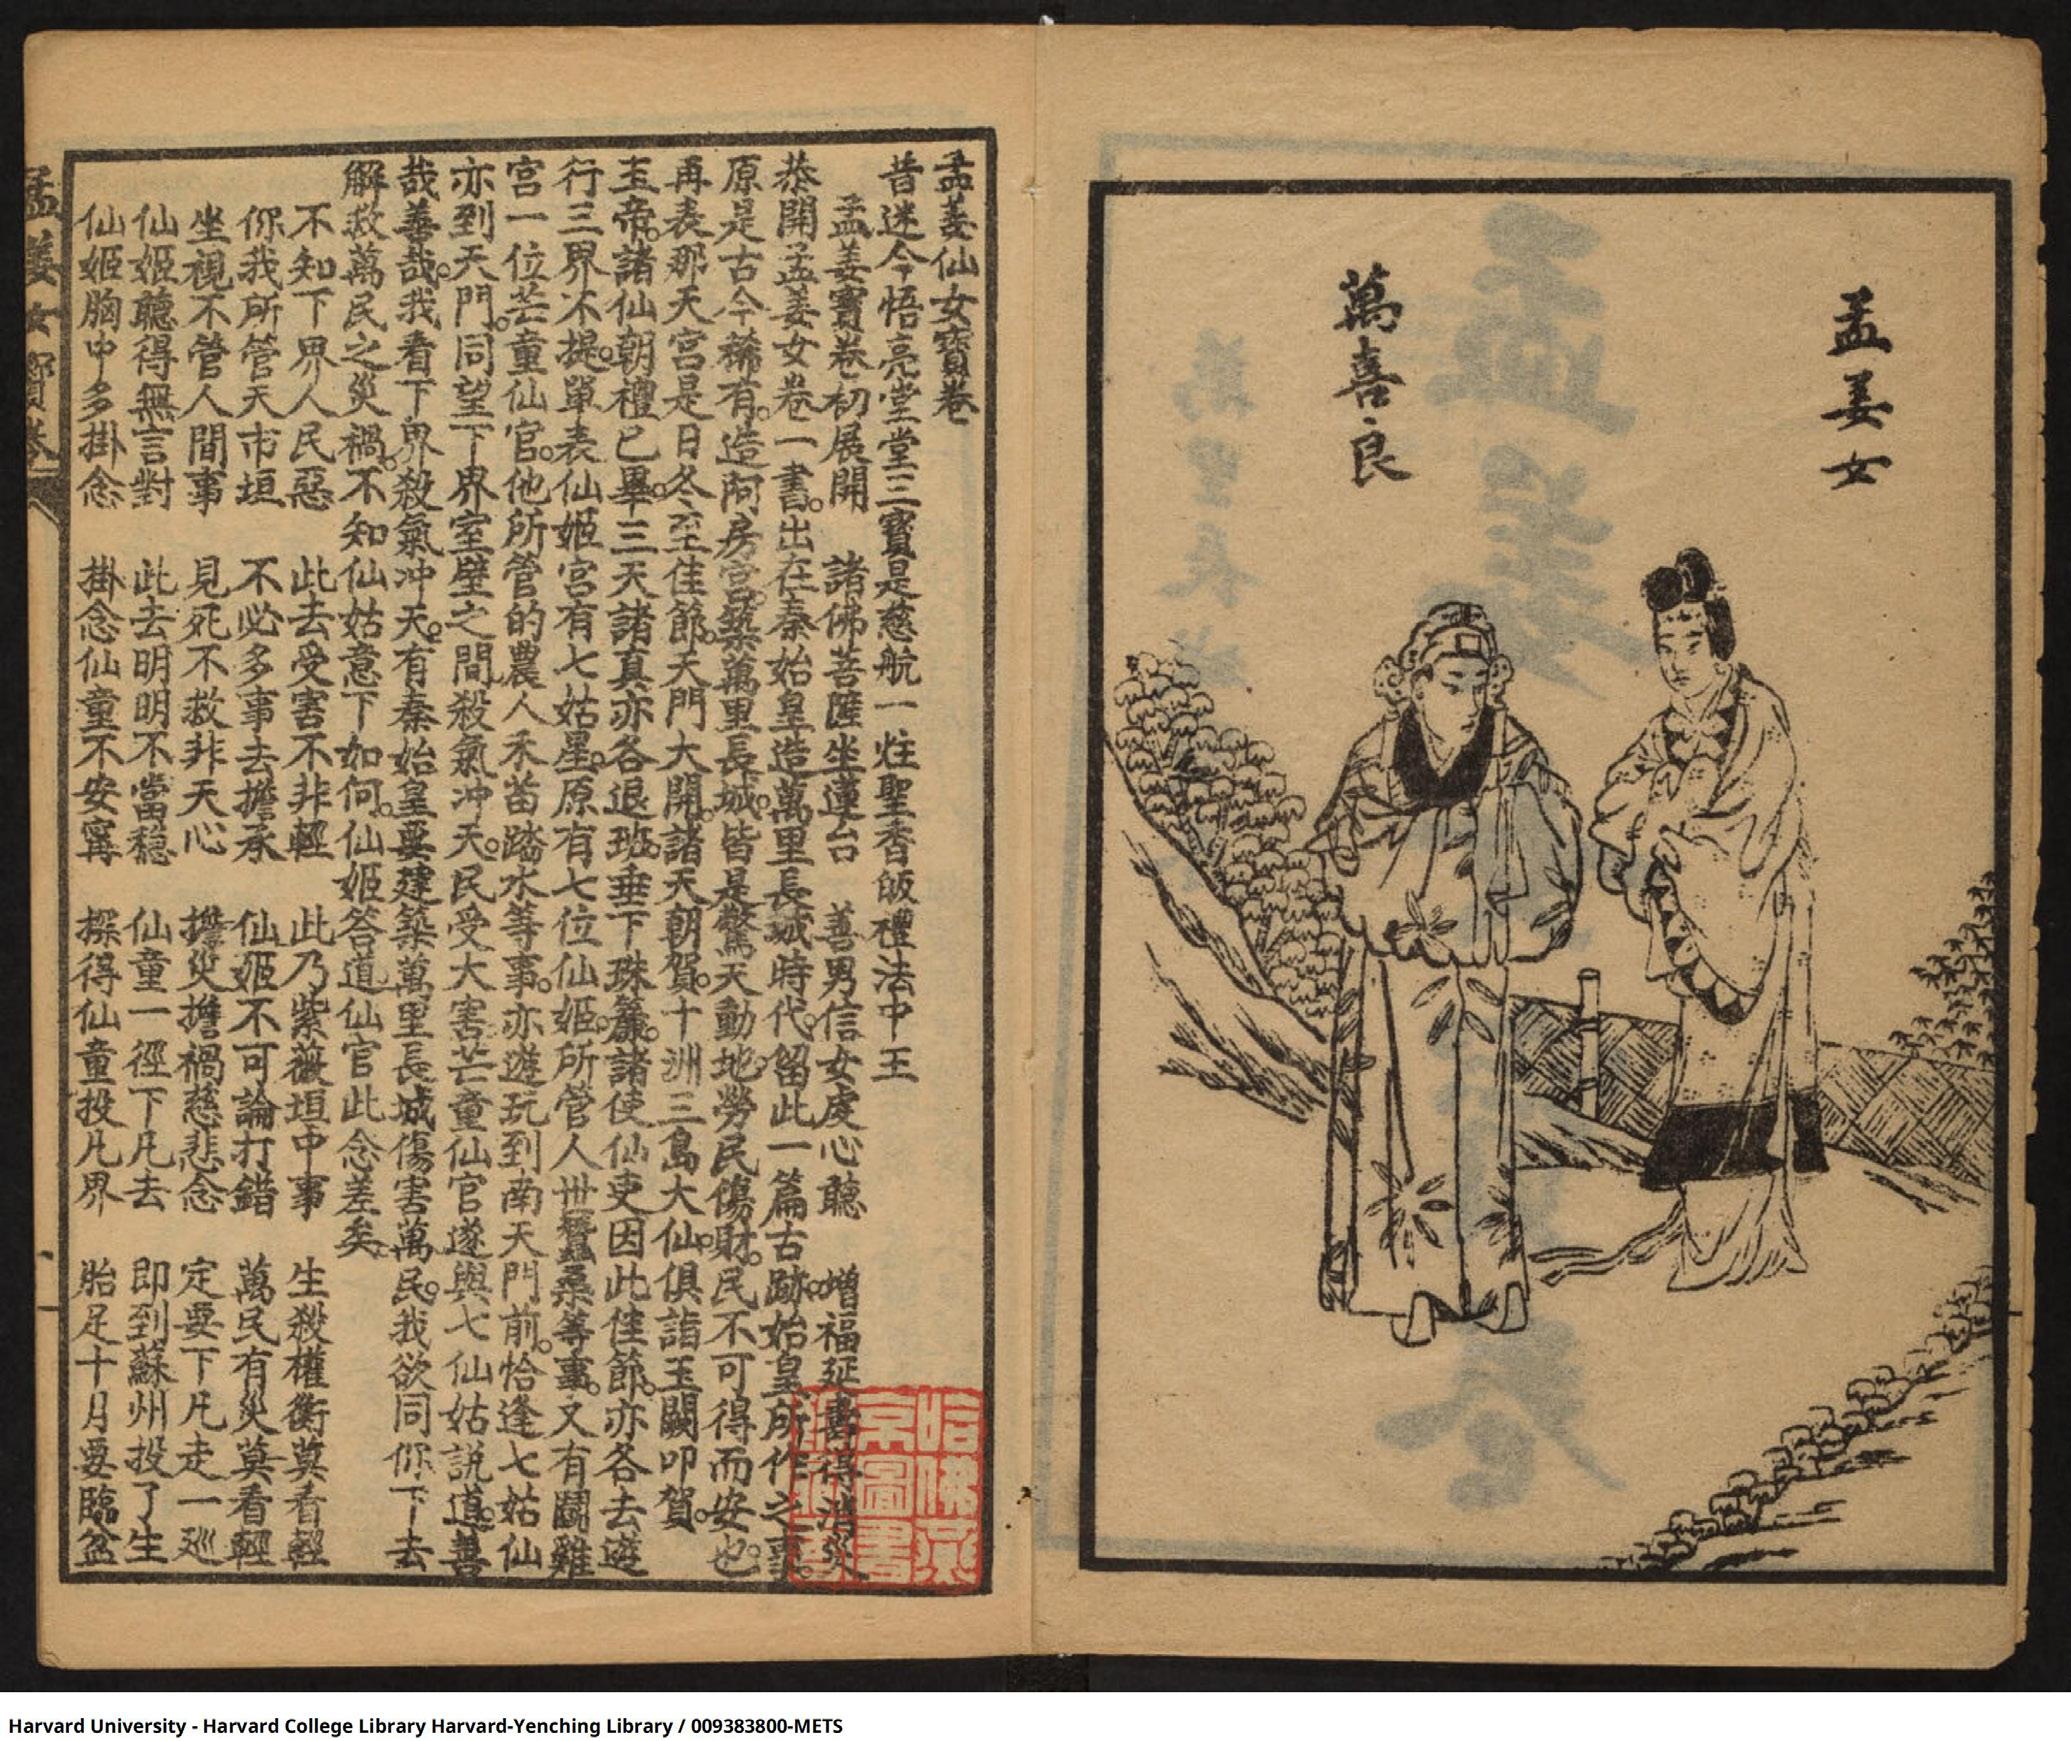 孟姜女
萬喜良
孟姜仙女寶卷
昔迷今悟亮堂堂三寶是慈航一炷聖香皈禮法中王
孟姜寶卷初展開　諸佛菩薩坐蓮台　善男信女虔心聽　增福延壽得消災
恭開孟姜女卷一書。出在秦始皇造萬里長城時代。留此一篇古跡。始皇所作之事。
原是古今稀有。造阿房宮。築萬里長城。皆是驚天動地。勞民傷財。民不可得而安也。
再表那天宮是日冬至佳節。天門大開。諸天朝賀。十洲三島大仙。俱詣玉闕叩賀。
玉帝。諸仙朝禮已畢。三天諸真亦各退班。垂下珠簾。諸使仙吏因此佳節。亦各去遊
行三界不提。單表仙姬宮有七姑星。原有七位仙姬。所管人世蠶桑等事。又有鬬雞
宮一位芒童仙官。他所管的農人禾苗踏水等事。亦遊玩到南天門前。恰逢七姑仙
亦到天門。同望下界室壁之間。殺氣冲天。民受大害。芒童仙官遂與七仙姑說道。善
哉善哉。我看下界殺氣冲天。有秦始皇要建築萬里長城傷害萬民。我欲同你下去
解救萬民之災禍。不知仙姑意下如何。仙姬答道。仙官此念差矣。
不知下界人民惡　此去受害不非輕　此乃紫薇垣中事　生殺權衡莫看輕
你我所管天市垣　不必多事去擔承　仙姬不可論打錯　萬民有災莫看輕
坐視不管人間事　見死不救非天心　擔災擔禍慈悲念　定要下凡走一巡
仙姬聽得無言對　此去明明不當穩　仙童一徑下凡去　即到蘇州投了生
仙姬胸中多掛念　掛念仙童不安寗　探得仙童投凡界　胎足十月要臨盆
孟姜女寶卷
一
哈佛燕京圖書館
Harvard University - Harvard College Library Harvard-Yenching Library / 009383800-METS